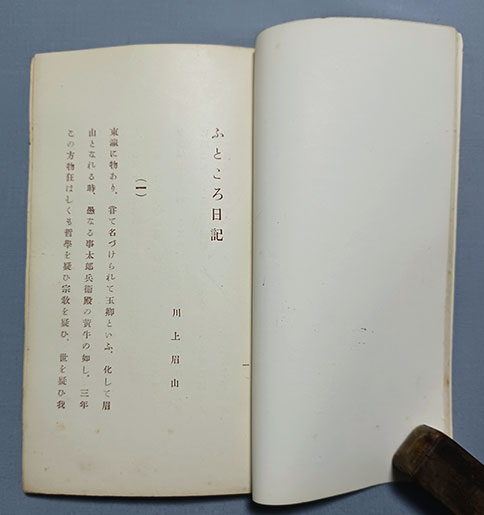 ふところ日記
川上眉山
(一)
東瀛に物あり、甞て名づけられて玉卿といふ、化して眉
山となれる時、愚なる事太郎兵衞殿の黄牛の如し、三年
この方物狂はしくも哲學を疑ひ宗敎を疑ひ、世を疑ひ我
一